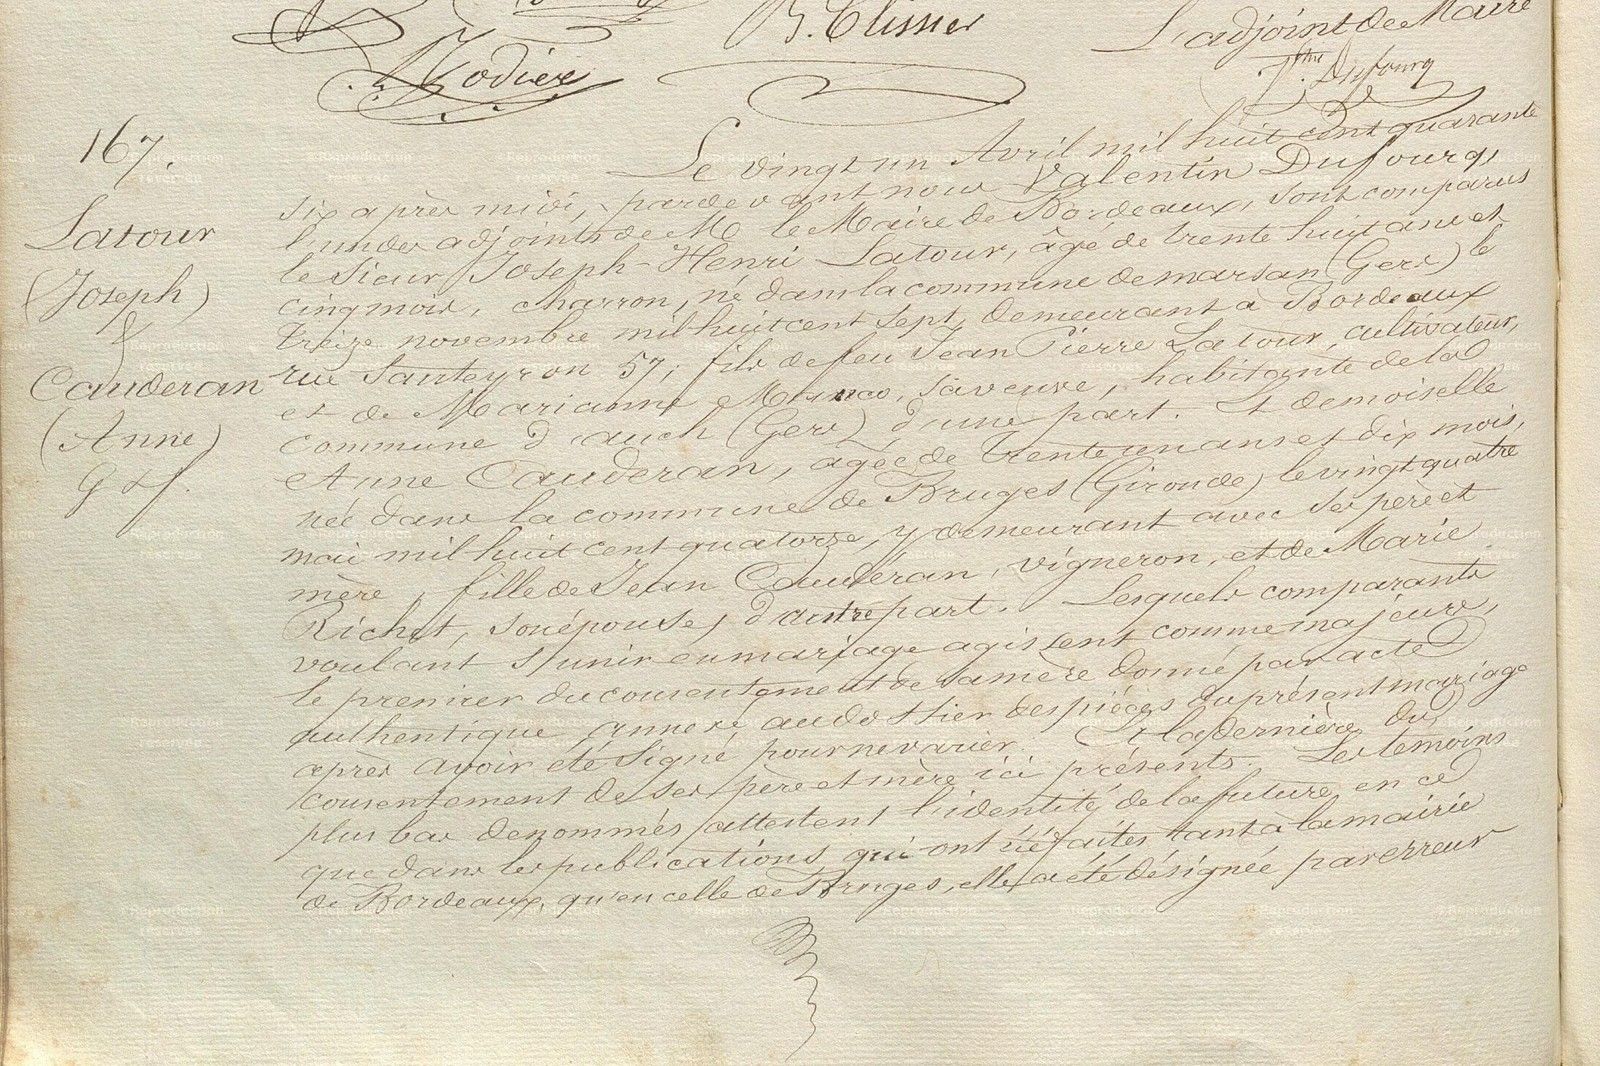 Rodier
B. Clisser
L'adjoint de Maire
Vtin Dufourg
167.
Latour
(Joseph)
&
Cauderan
(Anne)
G & f.
Le vingt un Avril mil huit cent quarante
six après midi, pardevant nous Valentin Dufourg,
l'un des adjoints de M. le Maire de Bordeaux, sont comparus
le sieur Joseph-Henri Latour, âgé de trente huit ans et
cinq mois, charron, né dans la commune de marsan (Gers) le
treize novembre mil huit cent sept, demeurant à Bordeaux
rue Santeyron 57, fils de feu Jean Pierre Latour, cultivateur,
et de Marianne, sa veuve, habitante de la
commune d'auch (Gers) d'une part. Et demoiselle
Anne Cauderan, agée de trente un ans et dix mois,
née dans la commune de Bruges (Gironde) le vingt quatre
mai mil huit cent quatorze, y demeurant avec ses père et
mère, fille de Jean Cauderan, vigneron, et de Marie
Richet, son épouse, d'autre part. Lesquels comparants
voulant s'unir en mariage agissent comme majeurs,
le premier du consentement de sa mère donné par acte
authentique annexé au dossier des pièces du présent mariage
après avoir été signé pour ne varier. Et la dernière du
consentement de ses père et mère ici présents. Les temoins
plus bas denommés attestent l'identité de la future, en ce
que dans les publications qui ont été faites tant à la mairie
de Bordeaux, qu'en celle de Bruges, elle a été désignée par erreur